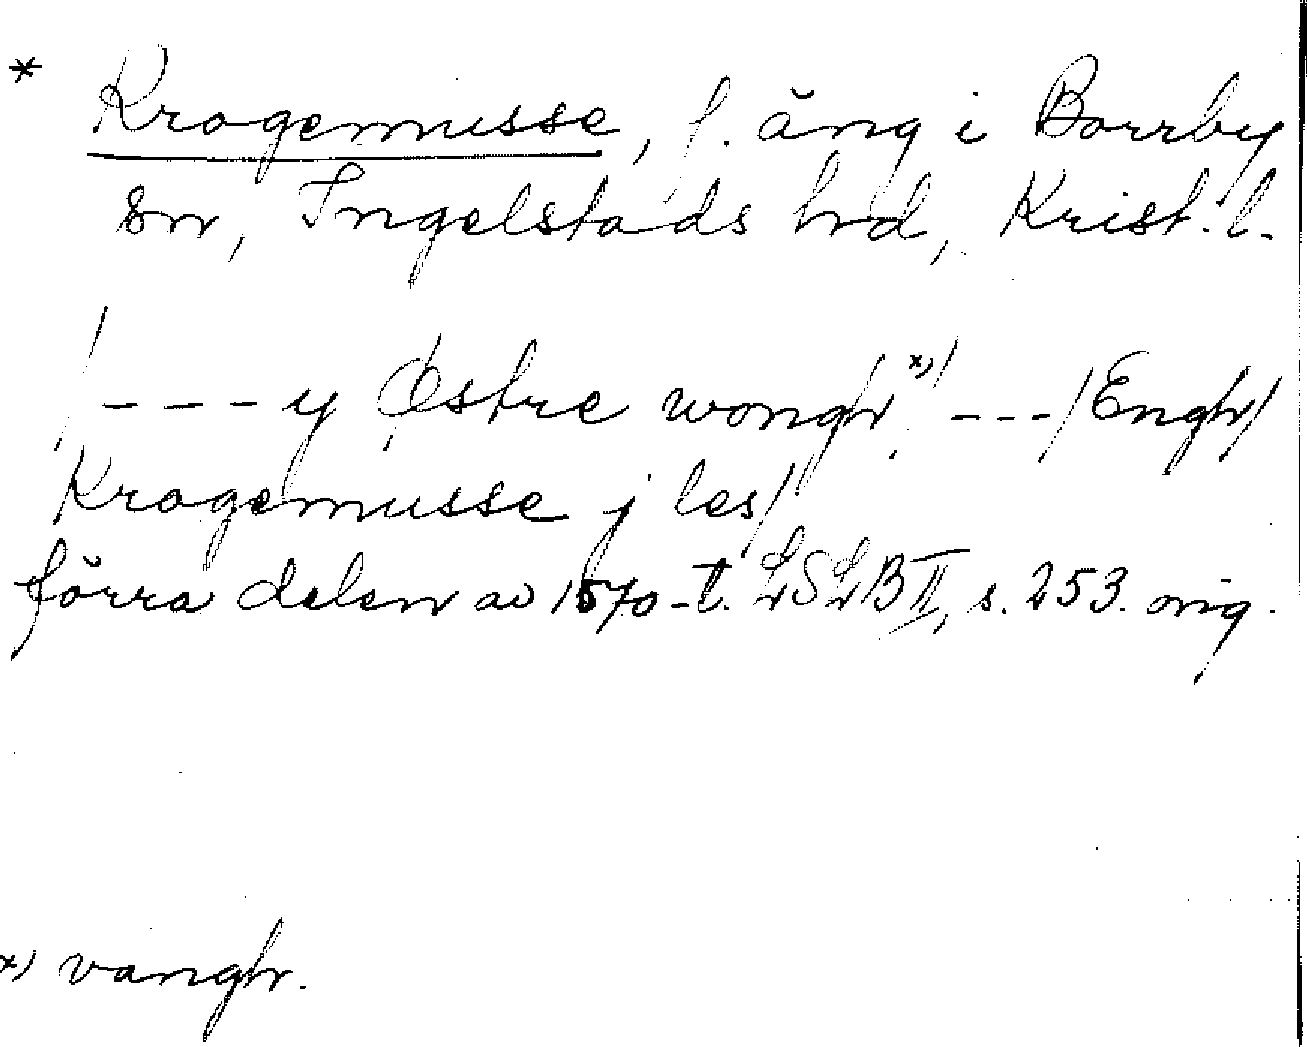 * Kragemusse, f. äng i Borrby
sn, Ingelstads hd, Krist. l.
/---y Østre wongh x) /---/Engh/
Kragemusse j les/
förra delen av 1570-t. LSLB II, s. 253. orig.
x) vangh.